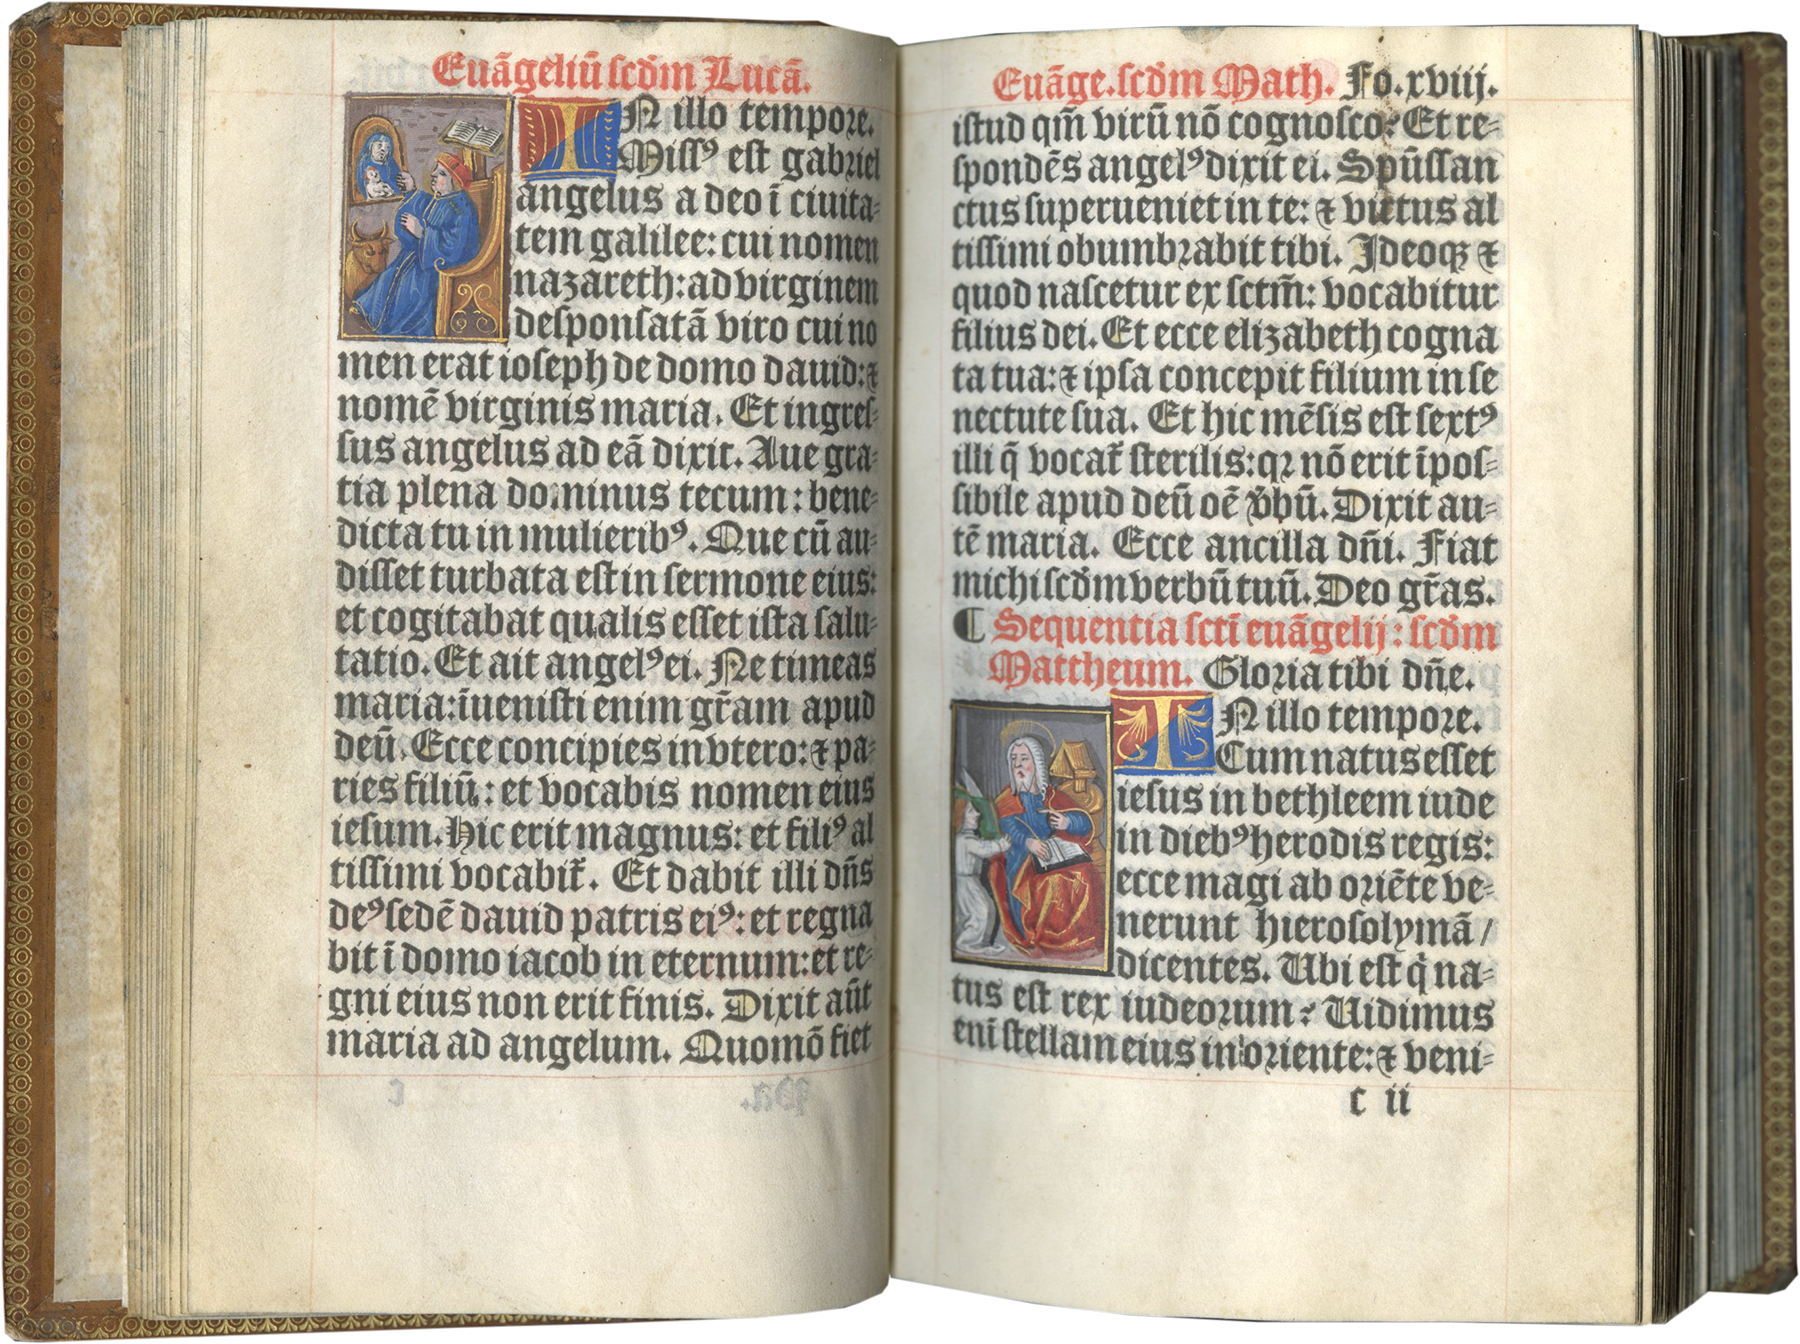 Euāgeliū ſcďm Lucā.
IN illo tempoꝛe.
Miſſꝰ eſt gabriel
angelus a deo ī ciuita⸗
tem galilee: cui nomen
nazareth: ad virginem
deſponſatā viro cui no
men erat ioſeph de domo dauid: ⁊
nomē virginis maria. Et ingreſ⸗
ſus angelus ad eā dixit. Aue gra⸗
tia plena dominus tecum: bene⸗
dicta tu in mulieribꝰ. Que cū au⸗
diſſet turbata eſt in ſermone eius:
et cogitabat qualis eſſet iſta ſalu⸗
tatio. Et ait angelꝰ ei. Ne timeas
maria: īueniſti enim gr̄am apud
deū. Ecce concipies in vtero: ⁊ pa⸗
ries filiū: et vocabis nomen eius
ieſum. Hic erit magnus: et filiꝰ al
tiſſimi vocabit᷑. Et dabit illi dn̄s
deꝰ ſedē dauid patris eiꝰ: et regna
bit ī domo iacob in eternum: et re⸗
gni eius non erit finis. Dixit aūt
maria ad angelum. Quomō fiet
Euāge. ſcďm Math. Fo. xviij.
iſtud qm̄ virū nō cognoſco? Et re⸗
ſpondēs angelꝰ dixit ei. Spūſſan
ctus ſuperueniet in te: ⁊ virtus al
tiſſimi obumbꝛabit tibi. Ideoqꝫ ⁊
quod naſcetur ex ſctm̄: vocabitur
filius dei. Et ecce elizabeth cogna
ta tua: ⁊ ipſa concepit filium in ſe
nectute ſua. Et hic mēſis eſt ſextꝰ
illi q̄ vocat᷑ ſterilis: qꝛ nō erit īpoſ⸗
ſibile apud deū oē v̄bū. Dixit au⸗
tē maria. Ecce ancilla dn̄i. Fiat
michi ſcďm verbū tuū. Deo gr̄as.
¶ Sequentia ſctī euāgelij: ſcďm
Mattheum. Gloꝛia tibi dn̄e.
IN illo tempoꝛe.
Cum natus eſſet
ieſus in bethleem iude
in diebꝰ herodis regis:
ecce magi ab oꝛiēte ve⸗
nerunt hieroſolymā /
dicentes. Ubi eſt q̇ na⸗
tus eſt rex iudeoꝛum? Uidimus
eni̅ ſtellam eius in oꝛiente: ⁊ veni⸗
c ii